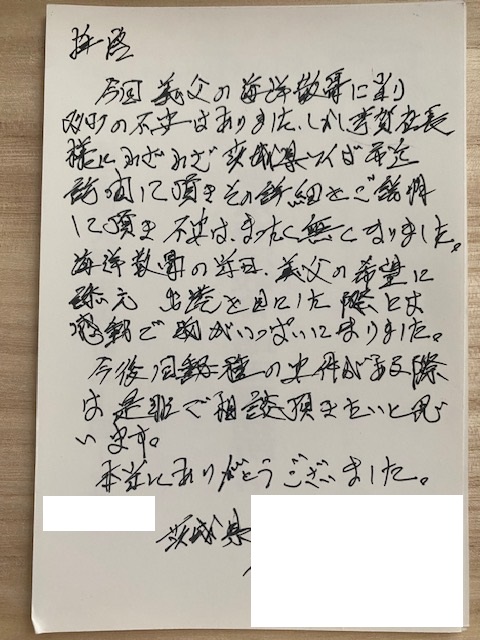 拝啓
今回 義父の海洋散骨に当り
多少の不安はありました、しかし 社長
様にわざわざ茨城県つくば市迄
訪問して頂きその詳細をご説明
して頂き 不安は、まったく無くなりました。
海洋散骨の当日、義父の希望に
添え 出港を目にした際には
感動で胸がいっぱいになりました。
今後同種の案件がある際
は是非ご相談頂きたいと思
います。
本当にありがとうございました。
茨城県